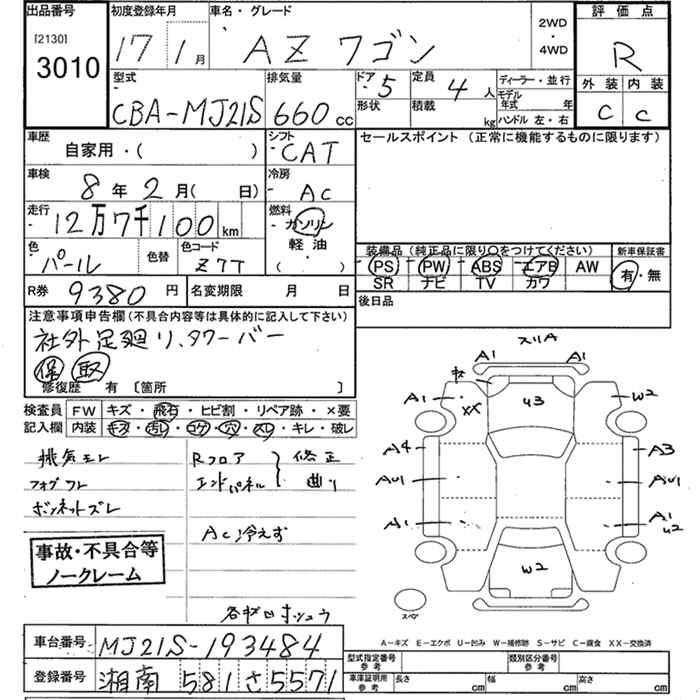 出品番号 初度登録年月 車名・グレード 2WD ・ 4WD 評価点
[2130] 3010 17 1月 AZワゴン R
型式 排気量 ドア 5 定員 4人 ディーラー・並行 外装 内装
CBA-MJ21S 660cc 形状 積載 kg モデル年式 年 ハンドル 左・右 C C
車歴 シフト セールスポイント (正常に機能するものに限ります)
自家用・( ) CAT
車検 冷房
8年2月( 日) AC
走行 燃料
12万7千100km ガソリン
軽油
( )
色 色替 色コード 装備品(純正品に限り○をつけてください) 新車保証書
パール Z7T PS PW ABS エアB AW 有・無
SR ナビ TV カワ
R券 9380円 名変期限 月 日 後日品
注意事項申告欄(不具合内容等は具体的に記入して下さい)
社外足廻り、タワーバー
保 取
修復歴 有 [箇所 ]
検査員 FW キズ・飛石・ヒビ割・リペア跡・×要
記入欄 内装 キズ・汚レ・コゲ・穴・スレ・キレ・破レ
排気モレ
フォグワレ
ボンネットズレ
Rフロア
エンドパネル
修正
曲り
AC冷えず
事故・不具合等
ノークレーム
スリA
A1 A1
A1 XX U3 W2
A4 A3
AU1 AU1
A1 A1
U2
W2
スペア
A-キズ E-エクボ U-凹み W-補修跡 S-サビ C-腐食 XX-交換済
車台番号 MJ21S-193484
登録番号 湘南 581 さ 5571
型式指定番号 参考 類別区分番号 参考
車庫証明用 参考 長さ cm 幅 cm 高さ cm